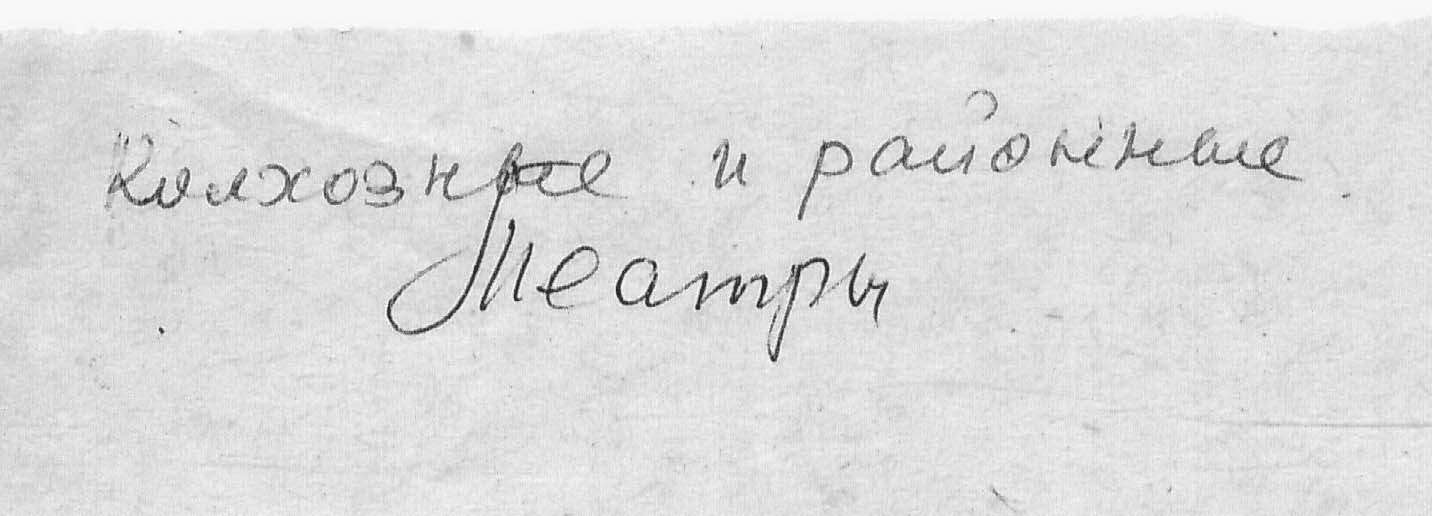 Колхозные и районные
Театры